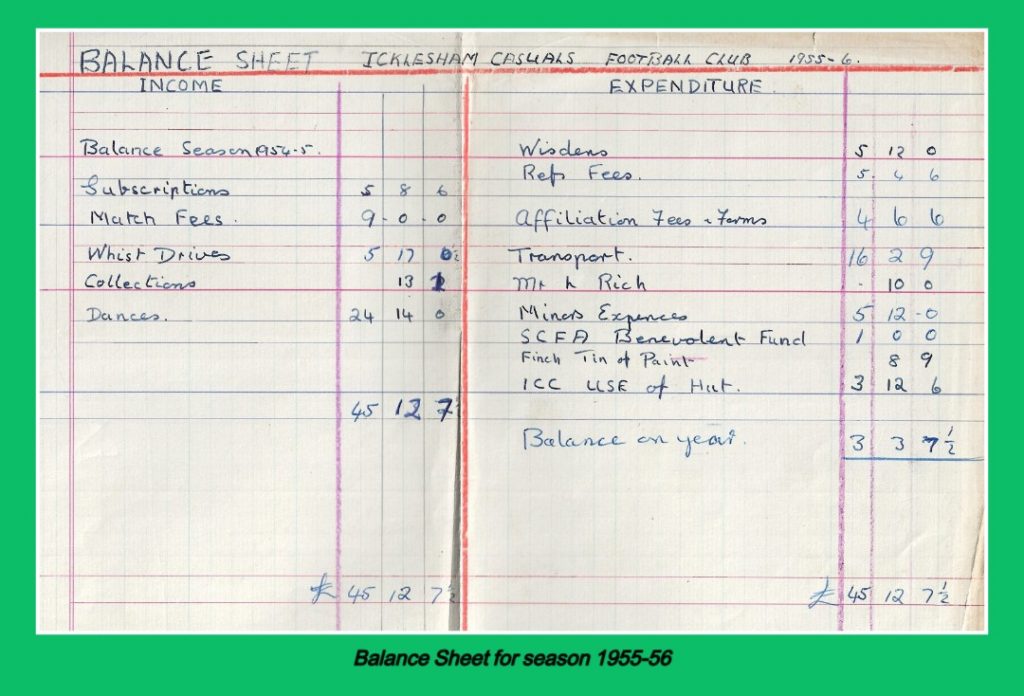 BALANCE SHEET ICKLESHAM CASUALS FOOTBALL CLUB 1955-6.
INCOME
Balance Season 1954-5.
Subscriptions 5 8 6
Match Fees. 9-0-0
Whist Drives 5 17 0½
Collections 13 1
Dances. 24 14 0
45 12 7½
£ 45 12 7½
EXPENDITURE
Wisdens 5 12 0
Refs Fees. 5. 4 6
Affiliation Fees & Forms 4 6 6
Transport. 16 2 9
Mr Rich - 10 0
Miners Expences 5 12-0
SCFA Benevolent Fund 1 0 0
Finch Tin of Paint 8 9
ICC USE of Hut. 3 12 6
Balance on year. 3 3 7½
£ 45 12 7½
Balance Sheet for season 1955-56